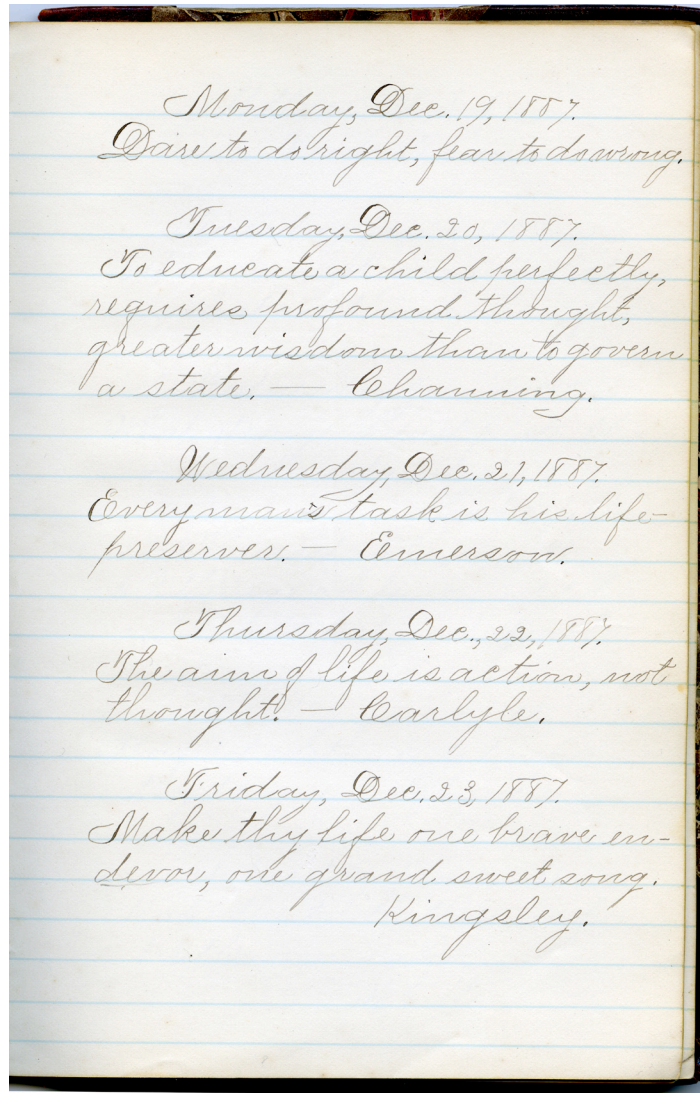 Monday, Dec. 19, 1887.
Dare to do right, fear to do wrong.
Tuesday, Dec. 20, 1887.
To educate a child perfectly,
requires profound thought,
greater wisdom than to govern
a state. — Channing.
Wednesday, Dec. 21, 1887.
Every man's task is his life-
preserver. — Emerson.
Thursday, Dec., 22, 1887.
The aim of life is action, not
thought. — Carlyle.
Friday, Dec. 23, 1887.
Make thy life one brave en-
devor, one grand sweet song.
Kingsley.